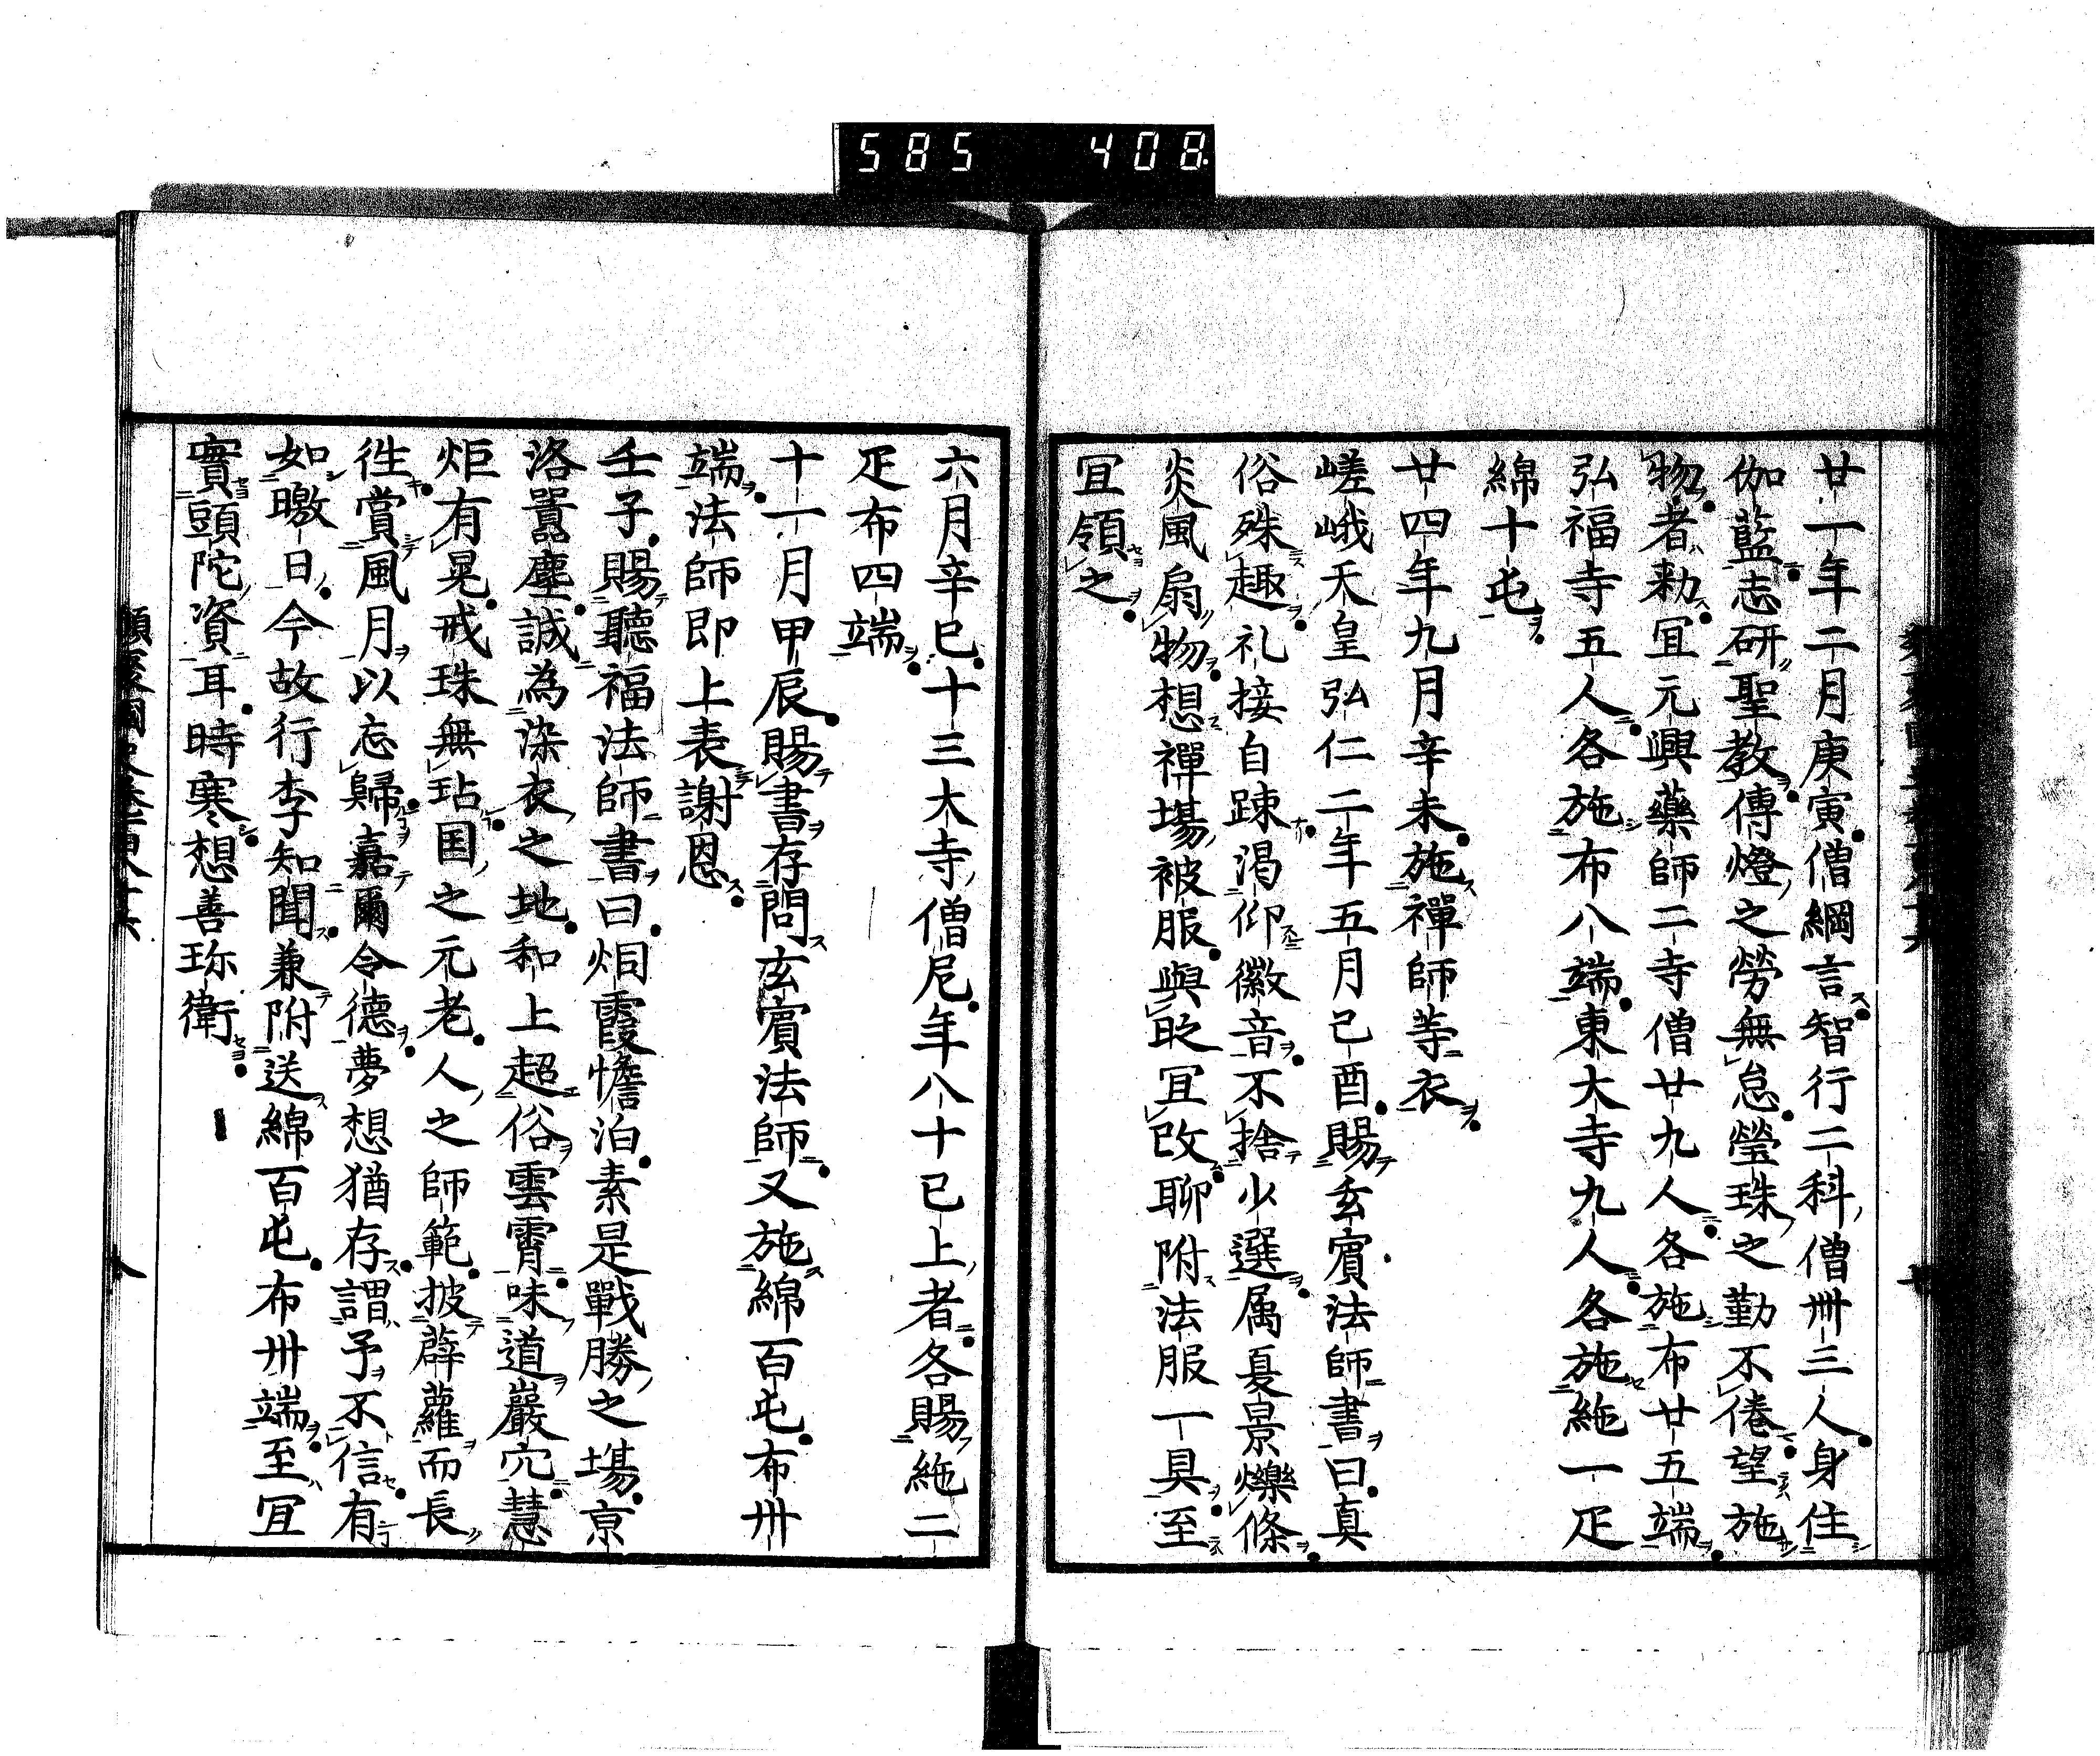 585 408
廿一年二月庚寅僧綱言智行二科僧卅三人身住
伽藍志研聖教傳燈之勞無怠瑩珠之勤不倦望施
物者勅宜元興藥師二寺僧廿九人各施布廿五端
弘福寺五人各施布八端東大寺九人各施絁一疋
綿十屯
廿四年九月辛未施禪師等衣
嵯峨天皇弘仁二年五月己酉賜玄賓法師書曰真
俗殊趣礼接自踈渴仰徽音不捨少選属夏景爍條
炎風扇物想禪場被服與時宜改聊附法服一具至
宜領之
六月辛巳十三大寺僧尼年八十已上者各賜絁二
疋布四端
十一月甲辰賜書存問玄賓法師又施綿百屯布卅
端法師即上表謝恩
壬子賜聽福法師書曰烟霞憺泊素是戰勝之場京
洛囂塵誠為染衣之地和上超俗雲霄味道巖穴慧
炬有晃戒珠無玷国之元老人之師範披薜蘿而長
徃賞風月以忘歸嘉爾令德夢想猶存謂予不信有
如曒日今故行李知聞兼附送綿百屯布卅端至宜
實頭陀資耳時寒想善珎衛
類聚國史卷百八十六
八